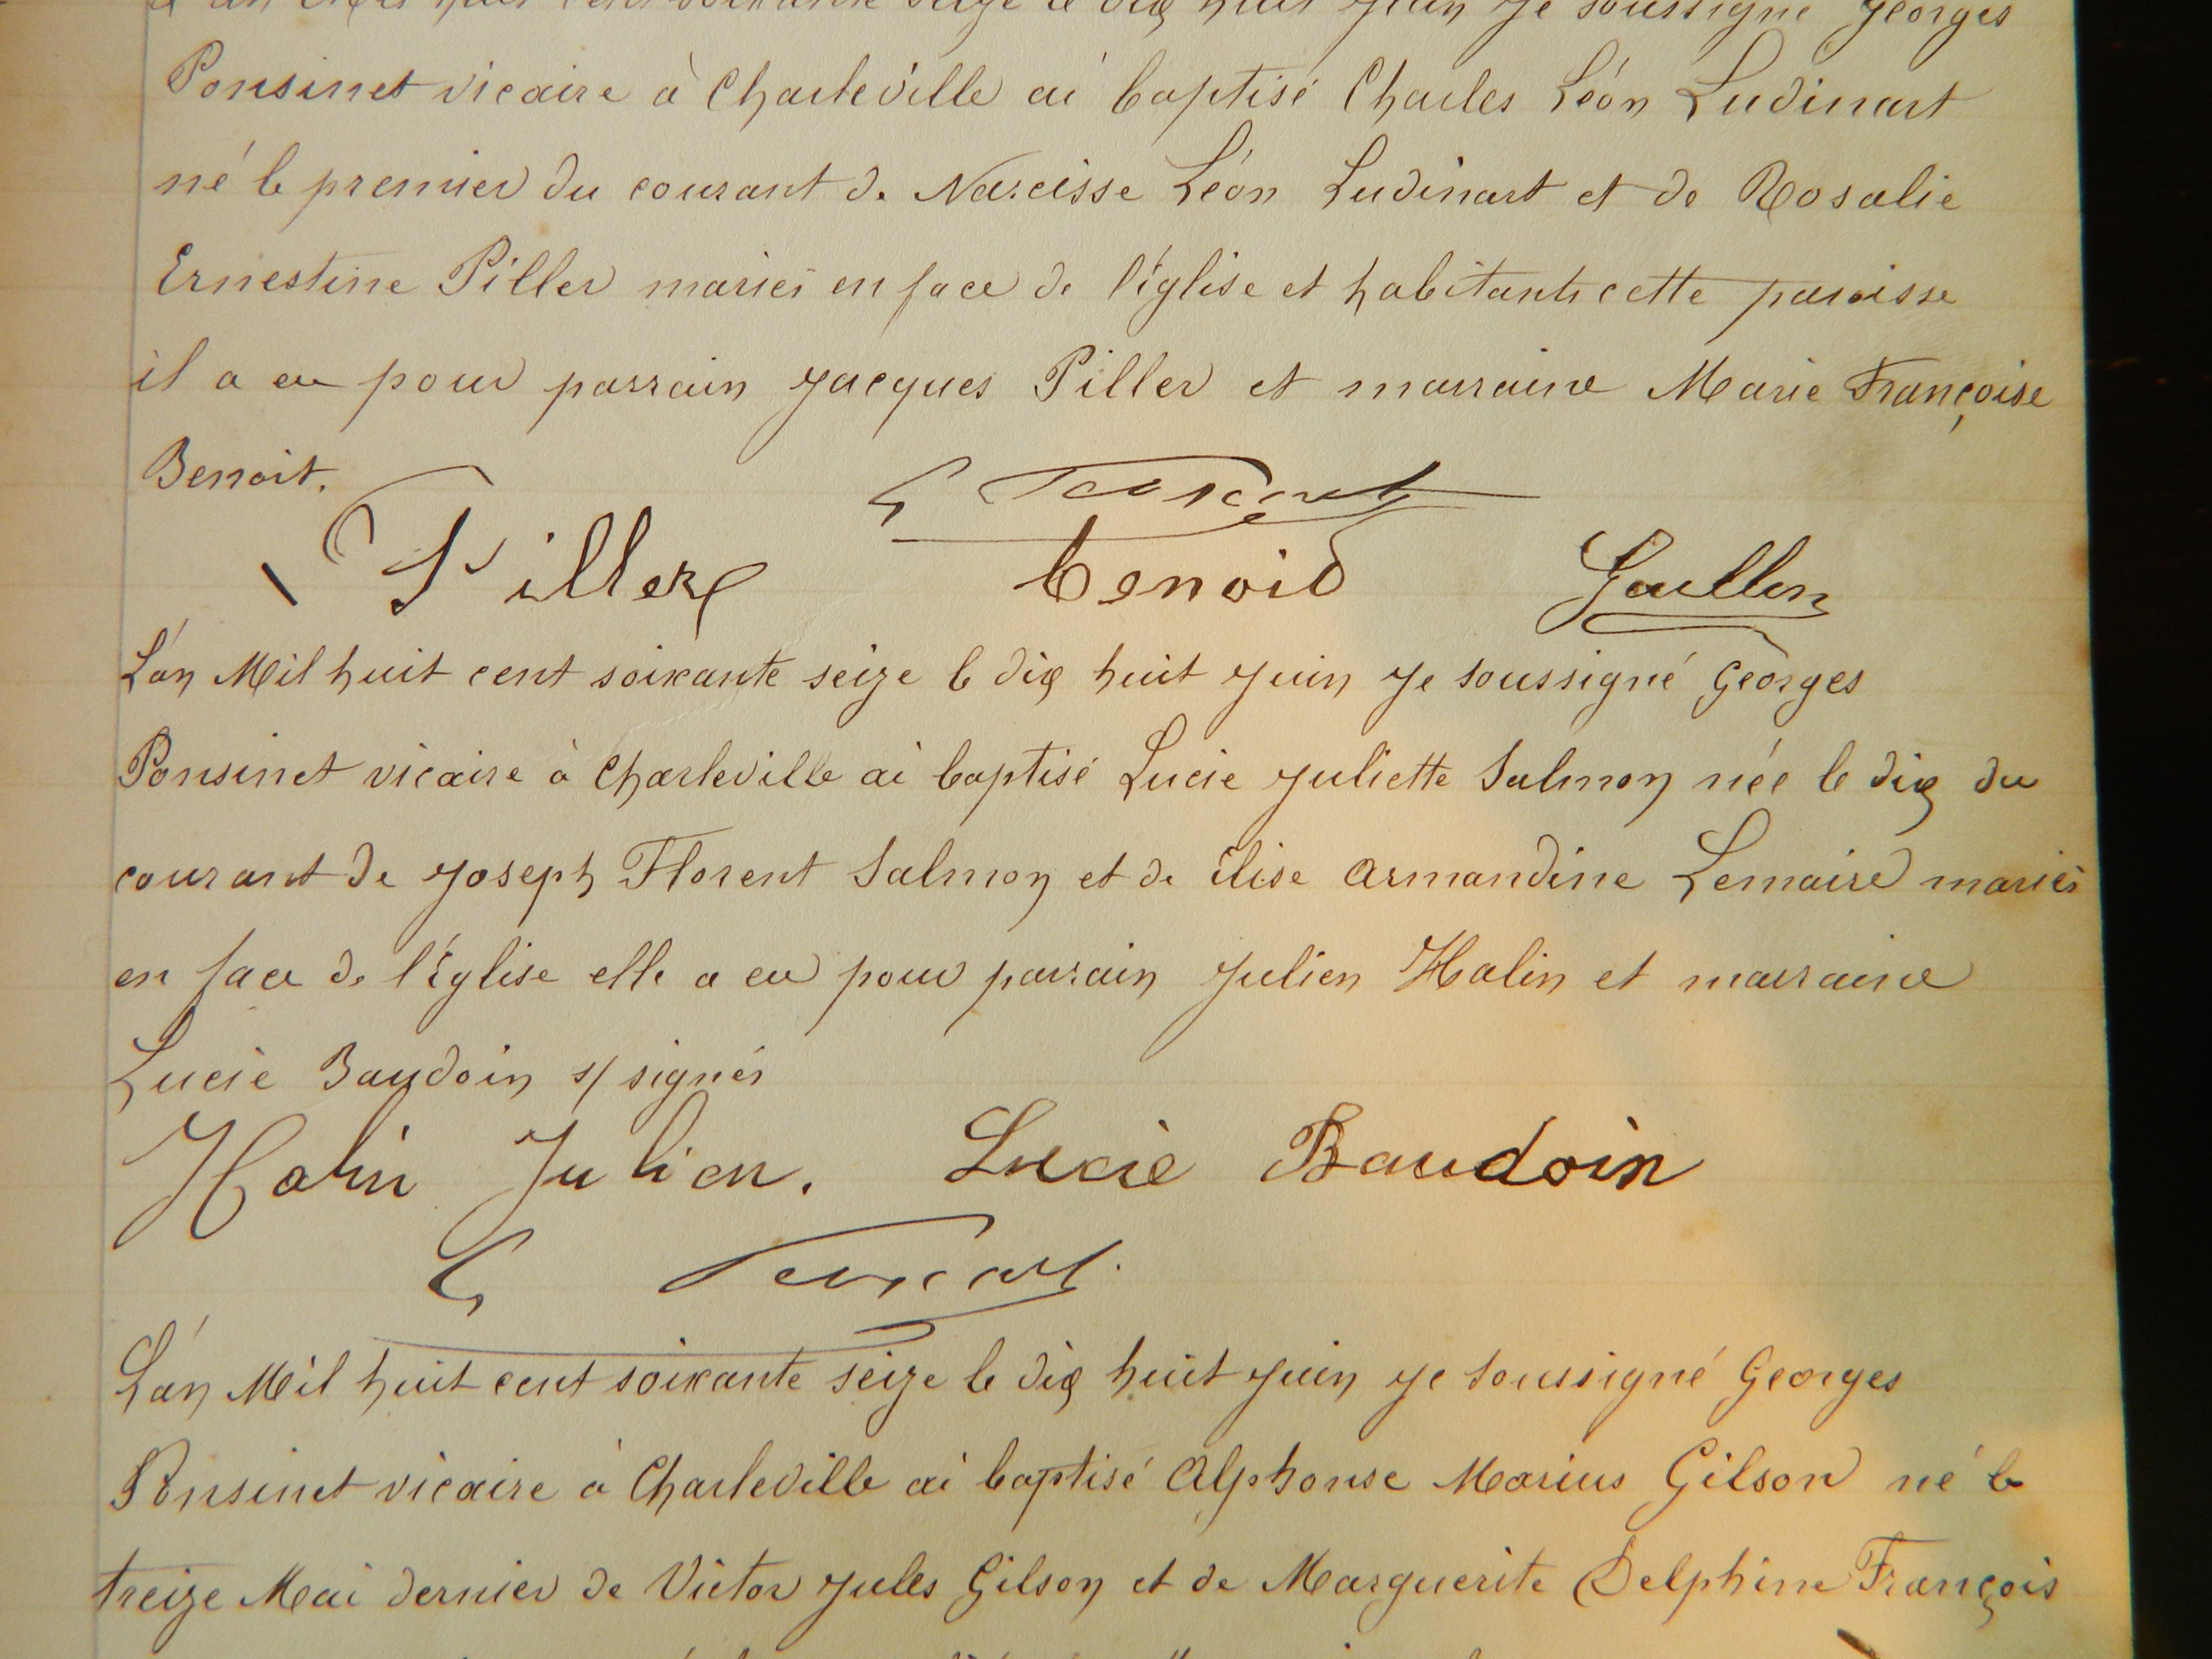 mil huit cent soixante seize le dix huit juin je soussigné Georges
Ponsinet vicaire à Charleville ai baptisé Charles Léon Ludinart
né le premier du courant de Narcisse Léon Ludinart et de Rosalie
Ernestine Piller mariés en face de l'église et habitants cette paroisse
il a eu pour parrain Jacques Piller et marraine Marie Françoise
Benoit.
G Ponsinet
Piller benoid
L'an Mil huit cent soixante seize le dix huit juin je soussigné Georges
Ponsinet vicaire à Charleville ai baptisé Lucie Juliette Salmon née le dix du
courant de Joseph Florent Salmon et de élise Armandine Lemaire mariés
en face de l'église elle a eu pour parrain Julien Halin et marraine
Lucie Baudoin s/signés
Halin Julien. Lucie Baudoin
G Ponsinet
L'an Mil huit cent soixante seize le dix huit juin je soussigné Georges
Ponsinet vicaire à Charleville ai baptisé Alphonse Marius Gilson né le
treize Mai dernier de Victor Jules Gilson et de Marguerite Delphine François